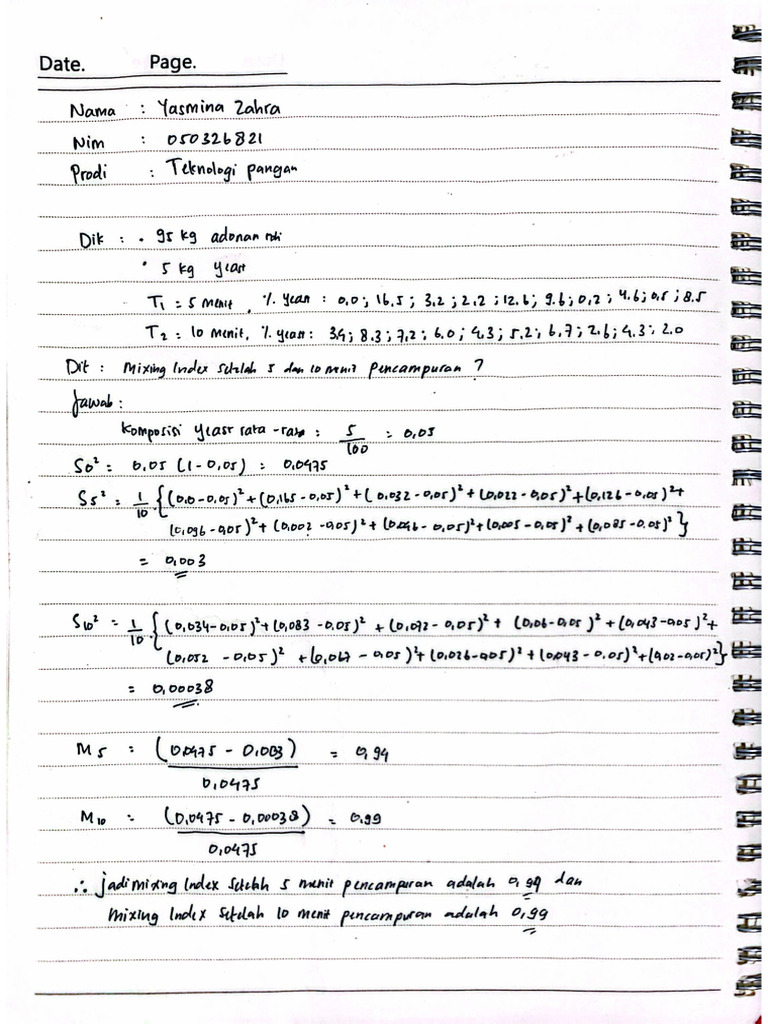 Date. Page.
Nama : Yasmina Zahra
Nim : 050326821
Prodi : Teknologi pangan
Dik : • 95 kg adonan roti
• 5 kg yeast
T₁ = 5 menit, % yeast : 0.0 ; 16.5 ; 3.2 ; 2.2 ; 12.6 ; 9.6 ; 0.2 ; 4.6 ; 0.5 ; 8.5
T₂ = 10 menit, % yeast : 3.4 ; 8.3 ; 7.2 ; 6.0 ; 4.3 ; 5.2 ; 6.7 ; 2.6 ; 4.3 ; 2.0
Dit : Mixing Index setelah 5 dan 10 menit pencampuran ?
Jawab :
Komposisi yeast rata-rata : 5/100 = 0,05
S0² = 0.05 (1 - 0,05) : 0,0475
S5² = 1/10 {(0,0-0,05)² + (0,165-0,05)² + (0,032-0,05)² + (0,022-0,05)² + (0,126-0,05)² +
(0,096-0,05)² + (0,002-0,05)² + (0,046-0,05)² + (0,005-0,05)² + (0,085-0,05)²}
= 0,003
S10² = 1/10 {(0,034-0,05)² + (0,083-0,05)² + (0,072-0,05)² + (0,06-0,05)² + (0,043-0,05)² +
(0,052-0,05)² + (0,067-0,05)² + (0,026-0,05)² + (0,043-0,05)² + (0,02-0,05)²}
= 0,00038
M5 = (0,0475 - 0,003) = 0,94
0,0475
M10 = (0,0475 - 0,00038) = 0,99
0,0475
∴ jadi mixing Index setelah 5 menit pencampuran adalah 0,94 dan
mixing Index setelah 10 menit pencampuran adalah 0,99